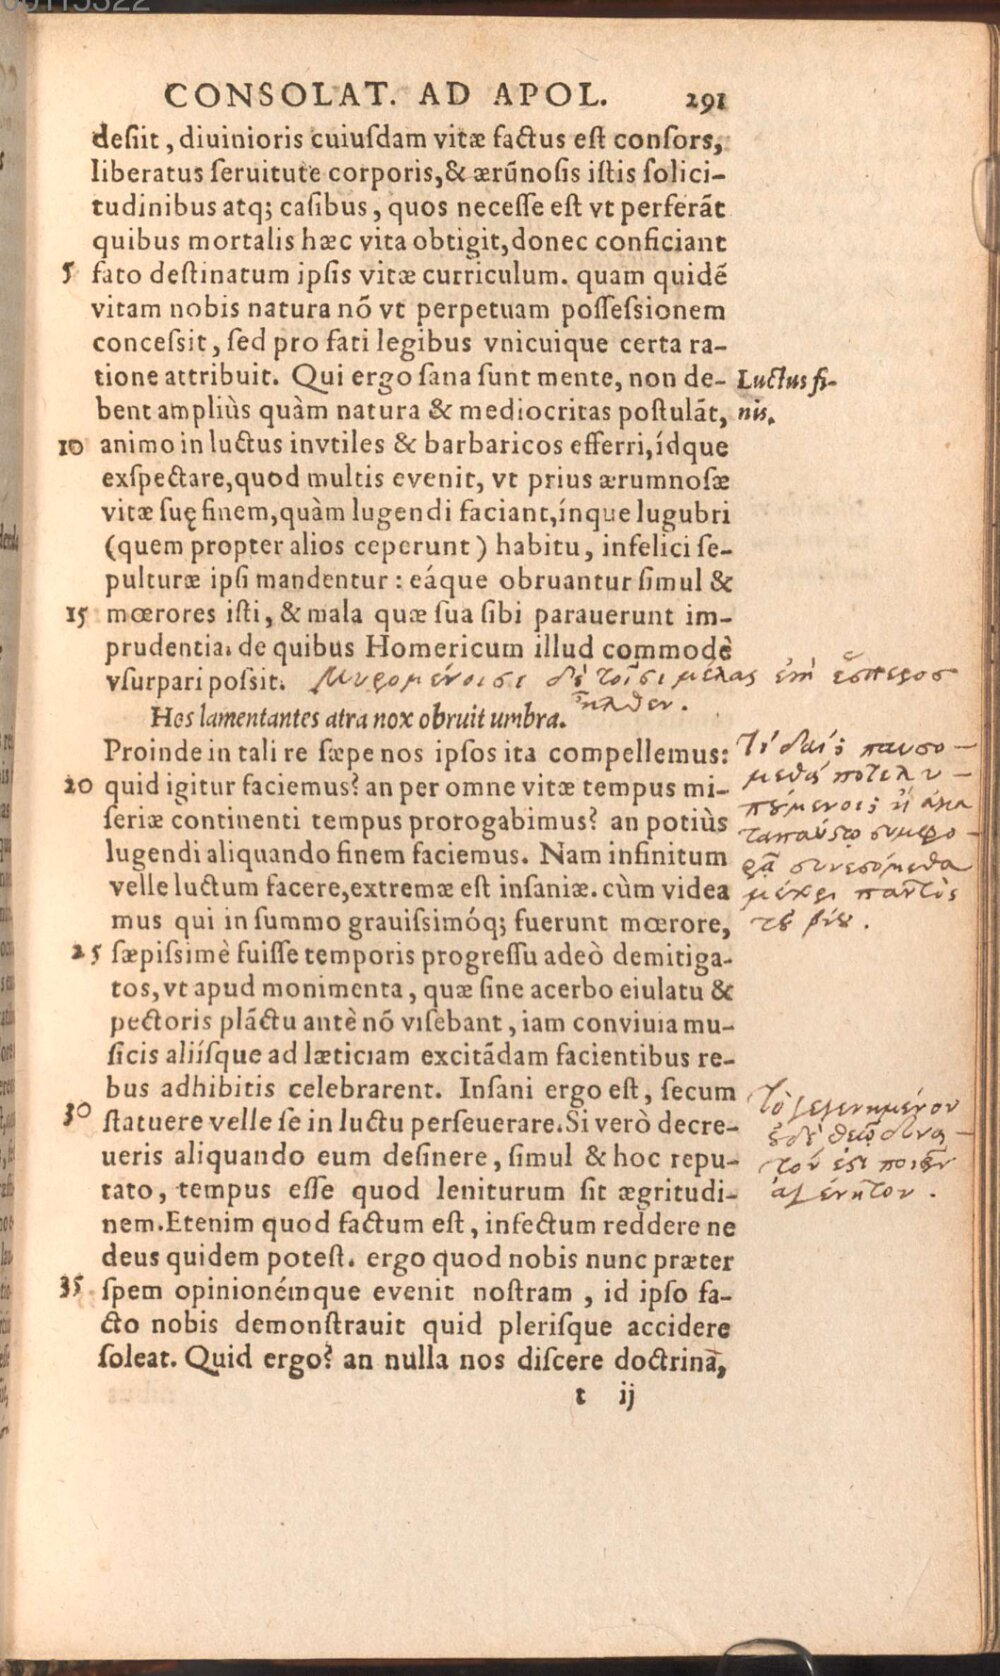 CONSOLAT. AD APOL. 291
desiit, diuinioris cuiusdam vitæ factus est consors,
liberatus seruitute corporis, & ærũnosis istis solici-
tudinibus atq; casibus, quos necesse est vt perferãt
quibus mortalis hæc vita obtigit, donec conficiant
5 fato destinatum ipsis vitæ curriculum. quam quidẽ
vitam nobis natura nõ vt perpetuam possessionem
concessit, sed pro fati legibus vnicuique certa ra-
tione attribuit. Qui ergo sana sunt mente, non de-
Luctus fi-
bent ampliùs quàm natura & mediocritas postulãt,
nis.
10 animo in luctus invtiles & barbaricos efferri, ídque
exspectare, quod multis evenit, vt prius ærumnosæ
vitæ suę finem, quàm lugendi faciant, ínque lugubri
(quem propter alios ceperunt) habitu, infelici se-
pulturæ ipsi mandentur: eáque obruantur simul &
15 mœrores isti, & mala quæ sua sibi parauerunt im-
prudentia. de quibus Homericum illud commodè
vsurpari possit.
Μυρομένοισι δὲ τοῖσι μέλας ἐπὶ ἕσπερος
ἦλθεν.
Hos lamentantes atra nox obruit umbra.
Proinde in tali re sæpe nos ipsos ita compellemus:
20 quid igitur faciemus? an per omne vitæ tempus mi-
seriæ continenti tempus prorogabimus? an potiùs
lugendi aliquando finem faciemus. Nam infinitum
velle luctum facere, extremæ est insaniæ. cùm videa
mus qui in summo grauissimóq; fuerunt mœrore,
25 sæpissimè fuisse temporis progressu adeò demitiga-
tos, vt apud monimenta, quæ sine acerbo eiulatu &
pectoris plãctu antè nõ visebant, iam conviuia mu-
sicis aliísque ad læticiam excitãdam facientibus re-
bus adhibitis celebrarent. Insani ergo est, secum
30 statuere velle se in luctu perseuerare. Si verò decre-
ueris aliquando eum desinere, simul & hoc repu-
tato, tempus esse quod leniturum sit ægritudi-
nem. Etenim quod factum est, infectum reddere ne
deus quidem potest. ergo quod nobis nunc præter
35 spem opinionémque evenit nostram, id ipso fa-
cto nobis demonstrauit quid plerisque accidere
soleat. Quid ergo? an nulla nos discere doctrina,
t ij
Τί δαί; παυσό-
μεθά ποτε λυ-
πούμενοι; ἢ ἀκα
ταπαύστῳ συμφο-
ρᾷ συνεσόμεθα
μέχρι παντὸς
τοῦ βίου.
Τὸ γεγενημένον
οὐδὲ θεῷ δυνα-
τόν ἐστι ποιεῖν
ἀγένητον.